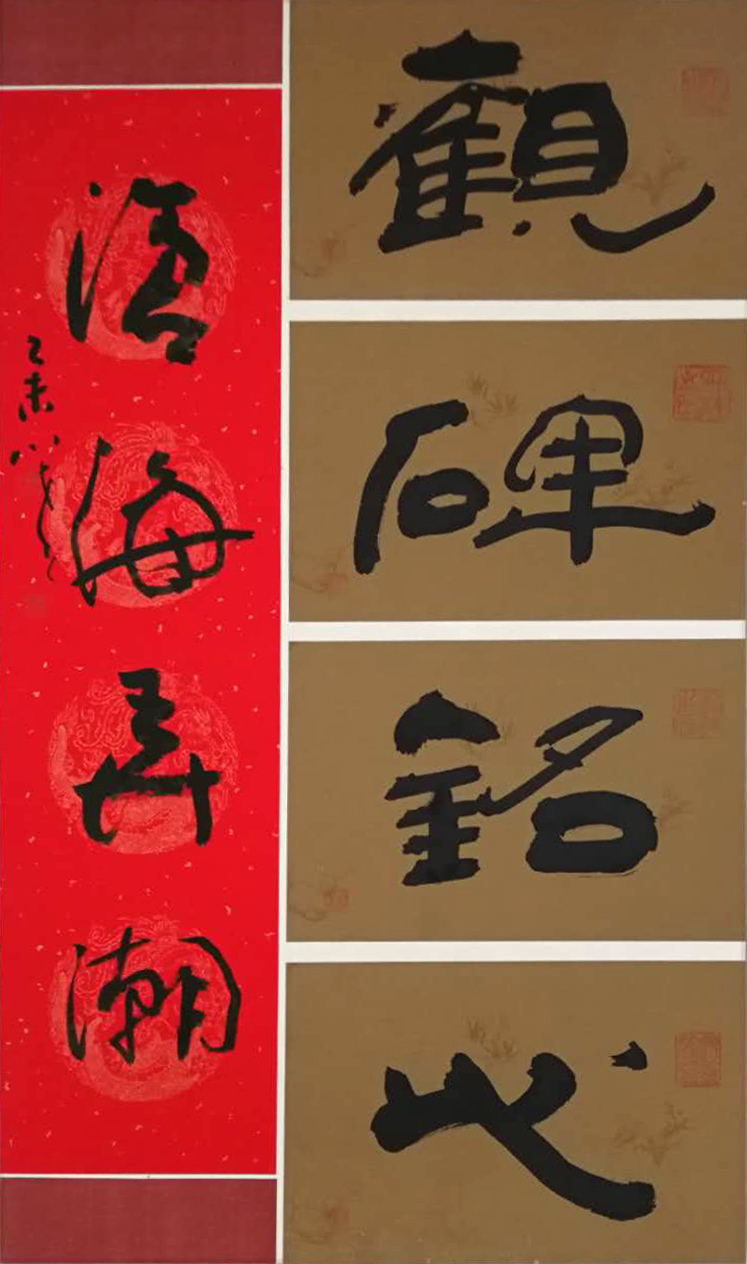 觀
碑
銘
心
滄海弄潮
乙未